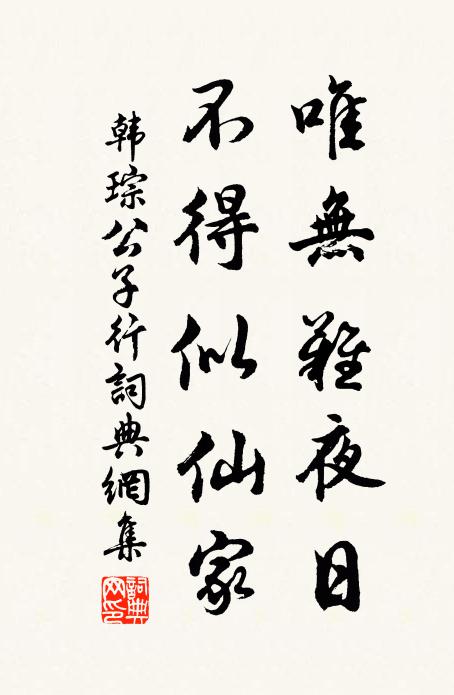 唯無難夜日
不得似仙家
韩琮公子行詞典網集
詞典
网印